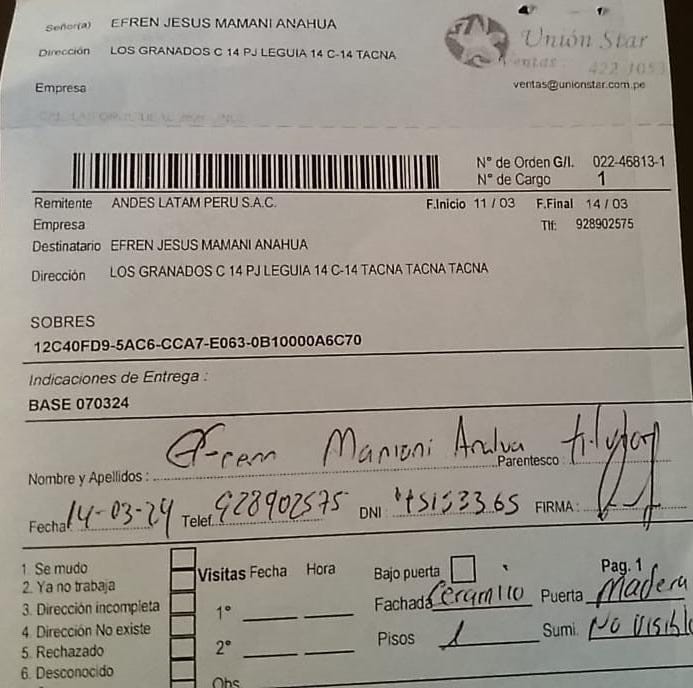 Señor(a) EFREN JESUS MAMANI ANAHUA
Dirección LOS GRANADOS C 14 PJ LEGUIA 14 C-14 TACNA
Unión Star
Ventas: 422 1053
Empresa
ventas@unionstar.com.pe
N° de Orden G/I. 022-46813-1
N° de Cargo 1
Remitente ANDES LATAM PERU S.A.C. F.Inicio 11 / 03 F.Final 14 / 03
Empresa Tlf: 928902575
Destinatario EFREN JESUS MAMANI ANAHUA
Dirección LOS GRANADOS C 14 PJ LEGUIA 14 C-14 TACNA TACNA TACNA
SOBRES
12C40FD9-5AC6-CCA7-E063-0B10000A6C70
Indicaciones de Entrega :
BASE 070324
Nombre y Apellidos : Efren Mamani Parentesco :
Fecha 14-03-24 Telef. 928902575 DNI : FIRMA :
1. Se mudo
2. Ya no trabaja
3. Dirección incompleta
4. Dirección No existe
5. Rechazado
6. Desconocido
Visitas Fecha Hora
1°
2°
Obs
Bajo puerta Pag. 1
Fachada Ceramico Puerta Madera
Pisos 1 Sumi. No Visible